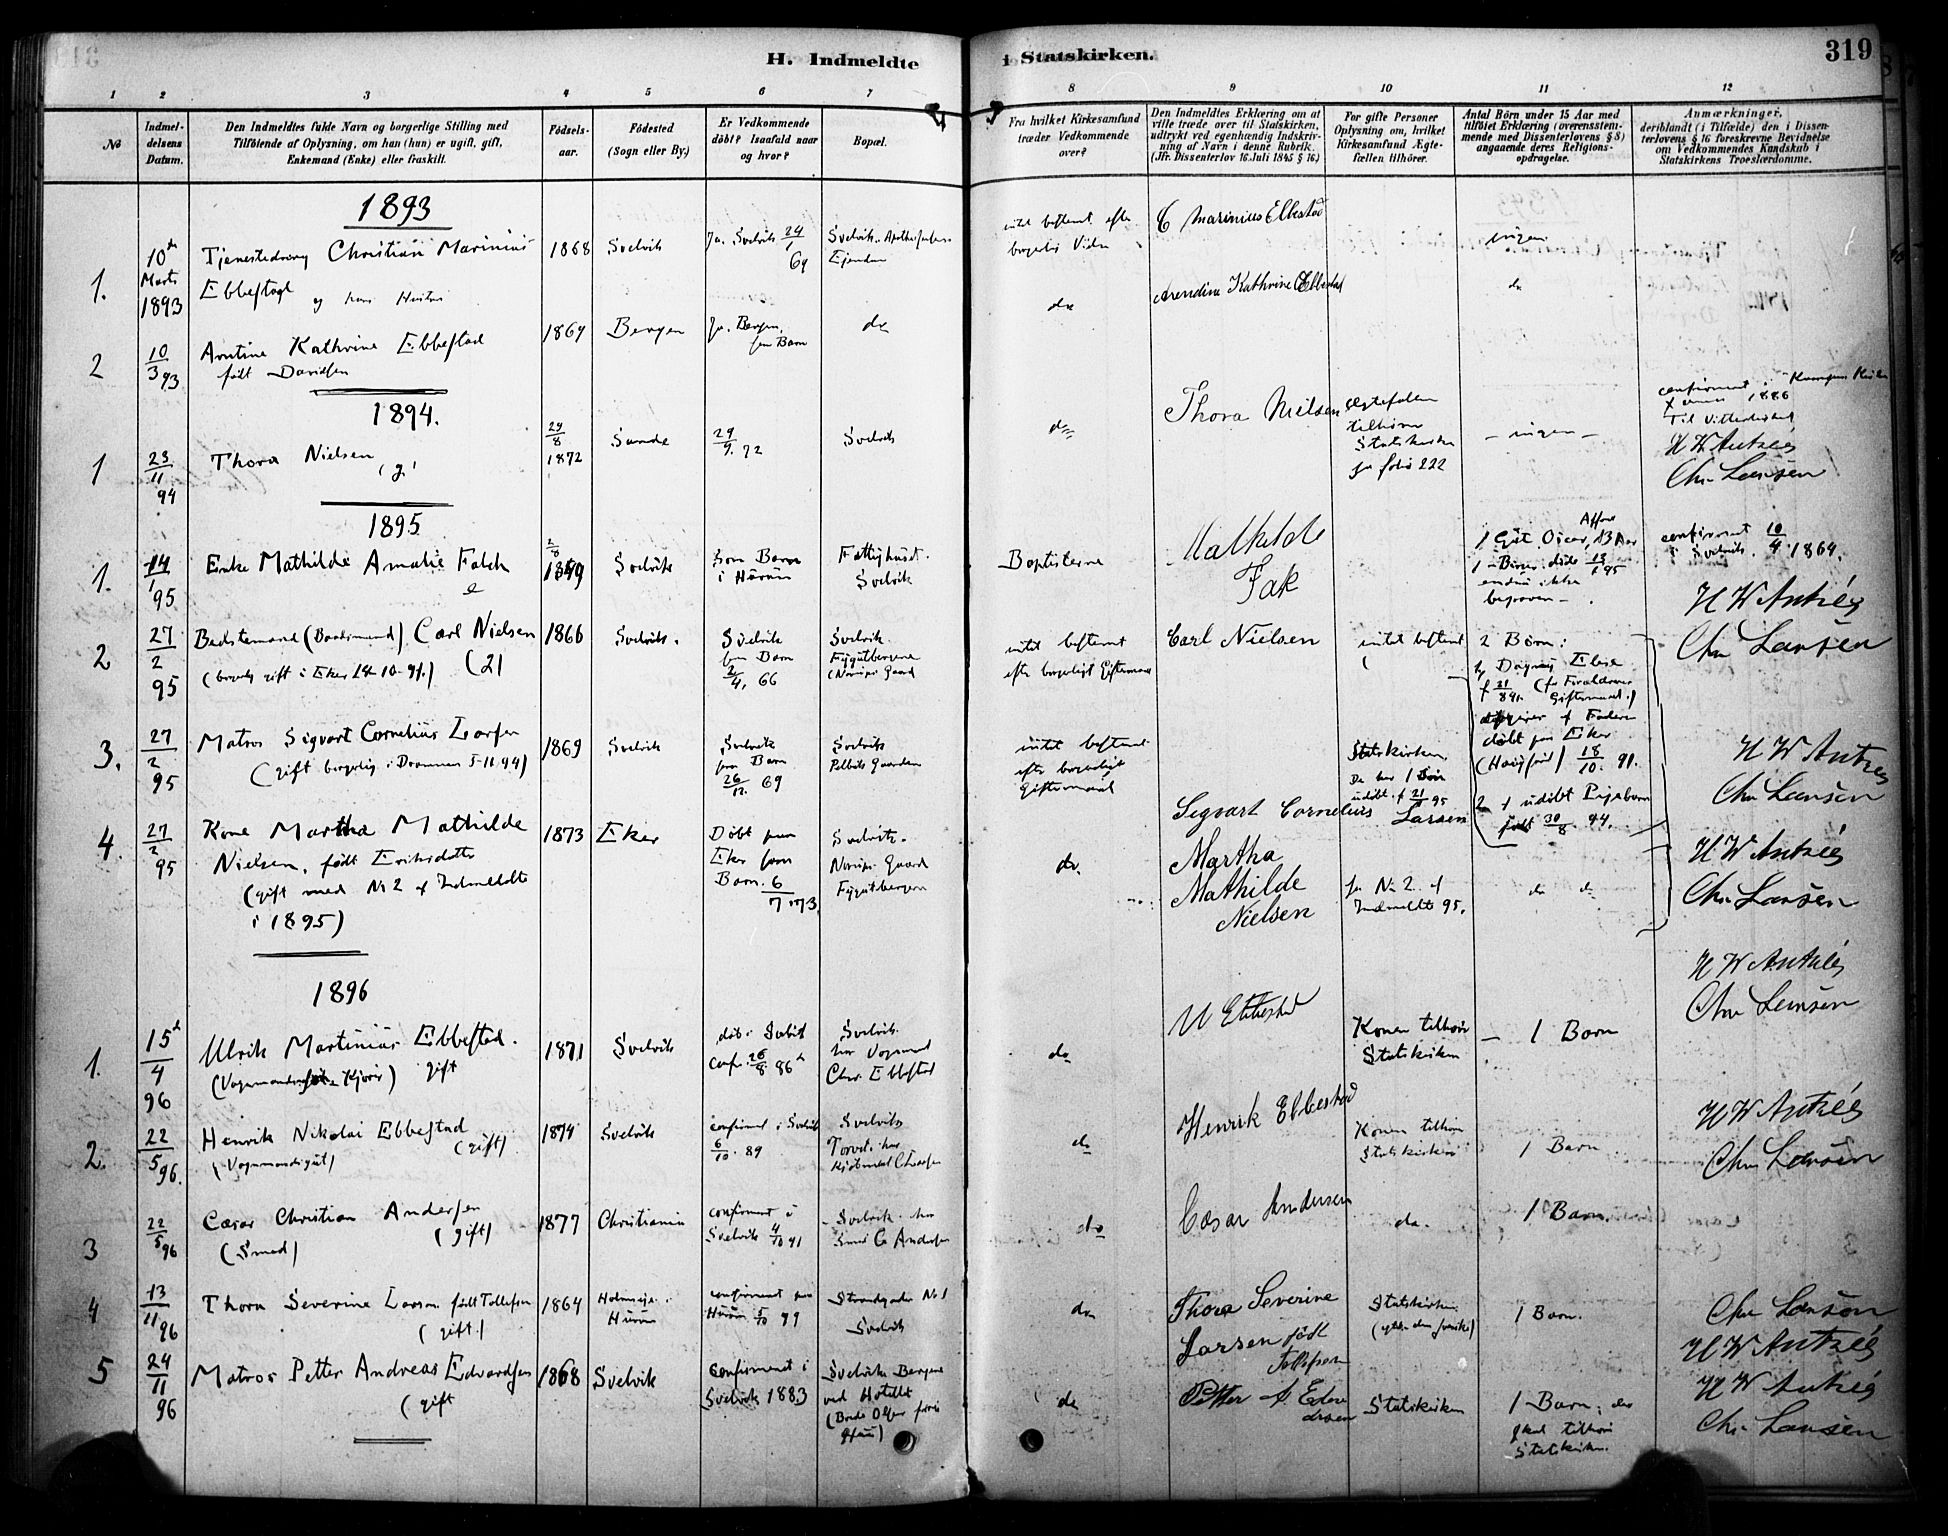 H. Indmeldte i Statskirken.
319
1 2 3 4 5 6 7 8 9 10 11 12
№
Indmel-
delsens
Datum.
Den Indmeldtes fulde Navn og borgerlige Stilling med
Tilföiende af Oplysning, om han (hun) er ugift, gift,
Enkemand (Enke) eller fraskilt.
Fødsels-
aar.
Födested
(Sogn eller By.)
Er Vedkommende
döbt? Isaafald naar
og hvor?
Bopæl.
Fra hvilket Kirkesamfund
træder Vedkommende
over?
Den Indmeldtes Erklæring om at
ville træde over til Statskirken,
udtrykt ved egenhændig Indskriv-
ning af Navn i denne Rubrik.
(Jfr. Dissenterlov 16 Juli 1845 § 16)
For gifte Personer
Oplysning om, hvilket
Kirkesamfund Ægte-
fællen tilhörer.
Antal Börn under 15 Aar med
tilföiet Erklæring (overensstem-
mende med Dissenterlovens § 8)
angaaende deres Religions-
opdragelse.
Anmærkninger,
deriblandt (i Tilfælde) den i Dissen-
terlovens § 16 foreskrevne Bevidnelse
om Vedkommendes Kundskab i
Statskirkens Troeslærdomme.
1893
1.
10de
Marts
1893
Tjenestedreng Christian Marinius
Ebbestad og hans Hustru
1868
Svelvik
Ja. Svelvik 24/1 69
intet bestemt efter
borgerlig
C Marinius Ebbestad
ingen
2
10/3 93
Arntine Kathrine Ebbestad
født Davidsen
1869
Bergen
Ja. Bergen,
som Barn
do
do
Arendine Kathrine Ebbestad
do
1894.
1
23/11 94
Thora Nielsen
(g)
29/8 1872
Sande
29/9. 72
Svelvik
do
Thora Nielsen
Ægtefællen
tilhører
Statskirken
folio 222
- ingen -
confirmeret i Kampen Kirke
1886
H W Antzée
Chr Larssen
1895
1.
14/1 95
Enke Mathilde Amalie Falck
2/8 1849
Svelvik
som Barn
i Hurum
Fattighuset.
Svelvik
Baptisterne
Mathilde
Fak
1 Gut Oscar, 13 Aar
1 - døde 13/1 95
endnu ikke
begraven -
confirmeret 10/4 1864.
i Svelvik.
H W Antzée
Chr Larssen
2
27/2 95
Bedstemand (Baadsmand) Carl Nielsen
(borgerlig gift i Eker 14-10-91.) (2)
1866
Svelvik.
Svelvik
som Barn
2/4, 66
Svelvik
intet bestemt
efter borgerligt Giftermaal
Carl Nielsen
intet bestemt
2 Børn:
Dagny Elise
døbt paa Eker
18/10. 91.
2 1 udøbt Pigebarn
født 30/8. 94.
3.
27/2 95
Matros Sigvart Cornelius Larsen
(gift borgerlig i Drammen 5-11 94)
1869
Svelvik
Svelvik
som Barn
26/12. 69
Svelvik
intet bestemt
efter borgerligt
Giftermaal
Sigvart Cornelius Larsen
Statskirken
De har 1 Søn
udøbt. f 21/1 95
H W Antzée
Chr Larssen
4.
27/2 95
Kone Martha Mathilde
Nielsen, født Eriksdatter
(gift med No 2 af Indmeldte
i 1895)
1873
Eker
Døbt paa
Eker som
Barn. 6/7 73
Svelvik.
do.
Martha
Mathilde
Nielsen
No 2 af
Indmeldte 95.
do do
H. W Antzée
Chr Larssen
1896
1.
15de/4 96
Ulrik Martinius Ebbestad.
gift
1871
Svelvik
Conf. 26/8. 86
Svelvik
hos Vognmand
Chr. Ebbestad
do
U Ebbestad
Konen tilhører
Statskirken
1 Barn
H W Antzée
Chr Larssen
2.
22/5 96.
Henrik Nikolai Ebbestad
(Vognmandsgut) (gift)
1874
Svelvik
confirmeret i Svelvik
6/10. 89
Svelvik
Torvet. hos
Kjøbmand C Larsen
do
Henrik Ebbestad
Konen tilhører
Statskirken
1 Barn
H W Antzée
Chr Larssen
3
22/5 96
Cæsar Christian Andersen
(Smed) (gift)
1877
Christiania
confirmeret i
Svelvik 4/10 91
Svelvik hos
Smed C Andersen
do
Cæsar Andersen
do.
1 Barn.
4
13/11 96
Thora Severine Larsen født Tollefsen
(gift.)
1864
Hurum
confirmeret paa
Hurum 5/10 79
Strandgaden No 1
Svelvik
do
Thora Severine
Larsen født
Tollefsen
Statskirken
1 Barn.
Chr Larssen
H W Antzée
5
24/11 96
Matros Petter Andreas Edvardsen
(gift
1868
Svelvik
Confirmeret i
Svelvik 1883
Svelvik Bergene
ved Hotellet
do
Petter A Edva
rdsen
Statskirken
1 Barn; der
skal tilhøre
Statskirken.
H W Antzée
Chr Larssen